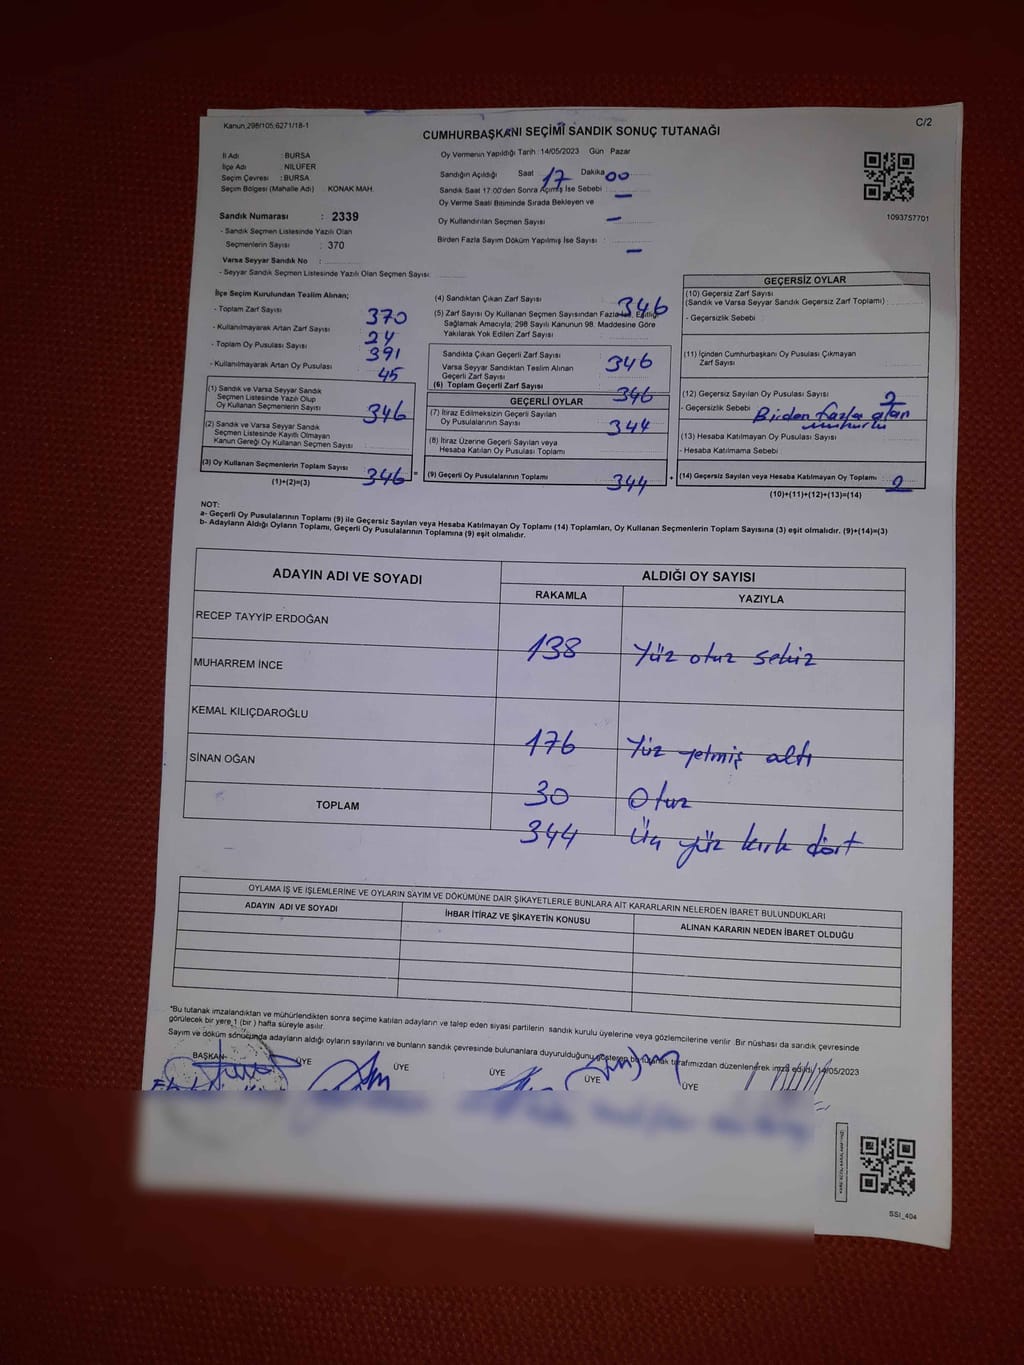 Kanun;298/105;6271/18-1
C/2
CUMHURBAŞKANI SEÇİMİ SANDIK SONUÇ TUTANAĞI
İl Adı : BURSA
İlçe Adı : NİLÜFER
Seçim Çevresi : BURSA
Seçim Bölgesi (Mahalle Adı) KONAK MAH.
Oy Vermenin Yapıldığı Tarih :14/05/2023 Gün Pazar
Sandığın Açıldığı Saat 17 Dakika 00
Sandık Saat 17:00'den Sonra Açılmış İse Sebebi : —
Oy Verme Saati Bitiminde Sırada Bekleyen ve
Oy Kullandırılan Seçmen Sayısı —
Birden Fazla Sayım Döküm Yapılmış İse Sayısı : —
1093757701
Sandık Numarası : 2339
- Sandık Seçmen Listesinde Yazılı Olan
Seçmenlerin Sayısı : 370
Varsa Seyyar Sandık No :
- Seyyar Sandık Seçmen Listesinde Yazılı Olan Seçmen Sayısı:
İlçe Seçim Kurulundan Teslim Alınan;
- Toplam Zarf Sayısı 370
- Kullanılmayarak Artan Zarf Sayısı 24
- Toplam Oy Pusulası Sayısı 391
- Kullanılmayarak Artan Oy Pusulası 45
(1) Sandık ve Varsa Seyyar Sandık
Seçmen Listesinde Yazılı Olup
Oy Kullanan Seçmenlerin Sayısı 346
(2) Sandık ve Varsa Seyyar Sandık
Seçmen Listesinde Kayıtlı Olmayan
Kanun Gereği Oy Kullanan Seçmen Sayısı
(3) Oy Kullanan Seçmenlerin Toplam Sayısı 346
(1)+(2)=(3)
=
(4) Sandıktan Çıkan Zarf Sayısı 346
(5) Zarf Sayısı Oy Kullanan Seçmen Sayısından Fazla İse, Eşitliği
Sağlamak Amacıyla; 298 Sayılı Kanunun 98. Maddesine Göre
Yakılarak Yok Edilen Zarf Sayısı
Sandıkta Çıkan Geçerli Zarf Sayısı 346
Varsa Seyyar Sandıktan Teslim Alınan
Geçerli Zarf Sayısı
(6) Toplam Geçerli Zarf Sayısı 346
GEÇERLİ OYLAR
(7) İtiraz Edilmeksizin Geçerli Sayılan
Oy Pusulalarının Sayısı 344
(8) İtiraz Üzerine Geçerli Sayılan veya
Hesaba Katılan Oy Pusulası Toplamı
(9) Geçerli Oy Pusulalarının Toplamı 344
+
GEÇERSİZ OYLAR
(10) Geçersiz Zarf Sayısı
(Sandık ve Varsa Seyyar Sandık Geçersiz Zarf Toplamı) :
- Geçersizlik Sebebi :
(11) İçinden Cumhurbaşkanı Oy Pusulası Çıkmayan
Zarf Sayısı
(12) Geçersiz Sayılan Oy Pusulası Sayısı 2
- Geçersizlik Sebebi : Birden fazla alan
mühürlü
(13) Hesaba Katılmayan Oy Pusulası Sayısı
- Hesaba Katılmama Sebebi
(14) Geçersiz Sayılan veya Hesaba Katılmayan Oy Toplamı 2
(10)+(11)+(12)+(13)=(14)
NOT:
a- Geçerli Oy Pusulalarının Toplamı (9) ile Geçersiz Sayılan veya Hesaba Katılmayan Oy Toplamı (14) Toplamları, Oy Kullanan Seçmenlerin Toplam Sayısına (3) eşit olmalıdır. (9)+(14)=(3)
b- Adayların Aldığı Oyların Toplamı, Geçerli Oy Pusulalarının Toplamına (9) eşit olmalıdır.
ADAYIN ADI VE SOYADI
ALDIĞI OY SAYISI
RAKAMLA YAZIYLA
RECEP TAYYİP ERDOĞAN
138 Yüz otuz sekiz
MUHARREM İNCE
KEMAL KILIÇDAROĞLU
176 Yüz yetmiş altı
SİNAN OĞAN
30 Otuz
TOPLAM
344 Üç yüz kırk dört
OYLAMA İŞ VE İŞLEMLERİNE VE OYLARIN SAYIM VE DÖKÜMÜNE DAİR ŞİKAYETLERLE BUNLARA AİT KARARLARIN NELERDEN İBARET BULUNDUKLARI
ADAYIN ADI VE SOYADI İHBAR İTİRAZ VE ŞİKAYETİN KONUSU ALINAN KARARIN NEDEN İBARET OLDUĞU
*Bu tutanak imzalandıktan ve mühürlendikten sonra seçime katılan adayların ve talep eden siyasi partilerin sandık kurulu üyelerine veya gözlemcilerine verilir. Bir nüshası da sandık çevresinde
görülecek bir yere 1 (bir ) hafta süreyle asılır.
Sayım ve döküm sonucunda adayların aldığı oyların sayılarını ve bunların sandık çevresinde bulunanlara duyurulduğunu gösteren bu tutanak tarafımızdan düzenlenerek imza edildi. 14/05/2023
BAŞKAN ÜYE ÜYE ÜYE ÜYE ÜYE
SSI_404